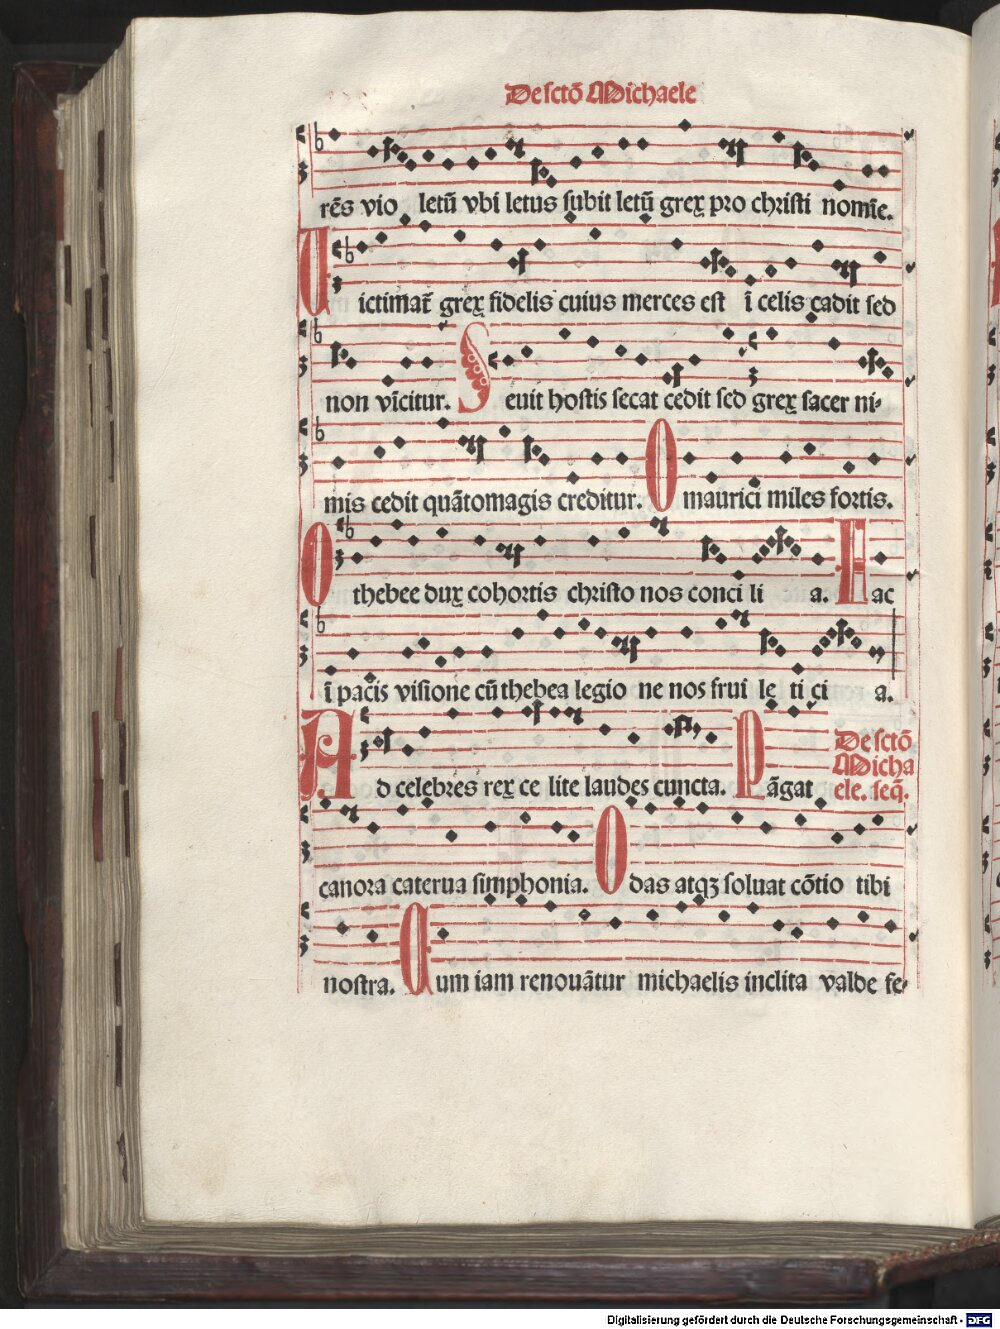 De sctō Michaele
rēs vio letū vbi letus subit letū grex pro christi nomīe.
Victimat᷑ grex fidelis cuius merces est ī celis cadit sed
non vīcitur. Seuit hostis secat cedit sed grex sacer ni-
mis cedit quātomagis creditur. O maurici miles fortis.
O thebee dux cohortis christo nos conci li a. Hac
ī pac̄is visione cū thebea legio ne nos frui le ti ci a.
Ad celebres rex ce lite laudes cuncta. Pāgat
De sctō
Micha
ele. seq̄.
canora caterua simphonia. Odas atqꝫ soluat cōtio tibi
nostra. Cum iam renouātur michaelis inclita valde fe-
Digitalisierung gefördert durch die Deutsche Forschungsgemeinschaft - DFG